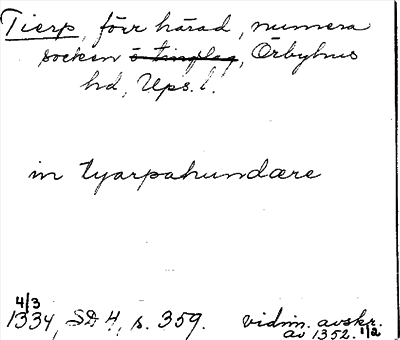 Tierp, förr härad, numera
socken o tingslag, Örbyhus
hd, Ups. l.
in tyarpahundære
4/3
1334, SD 4, s. 359. vidim. avskr.
av 1352. 1/2